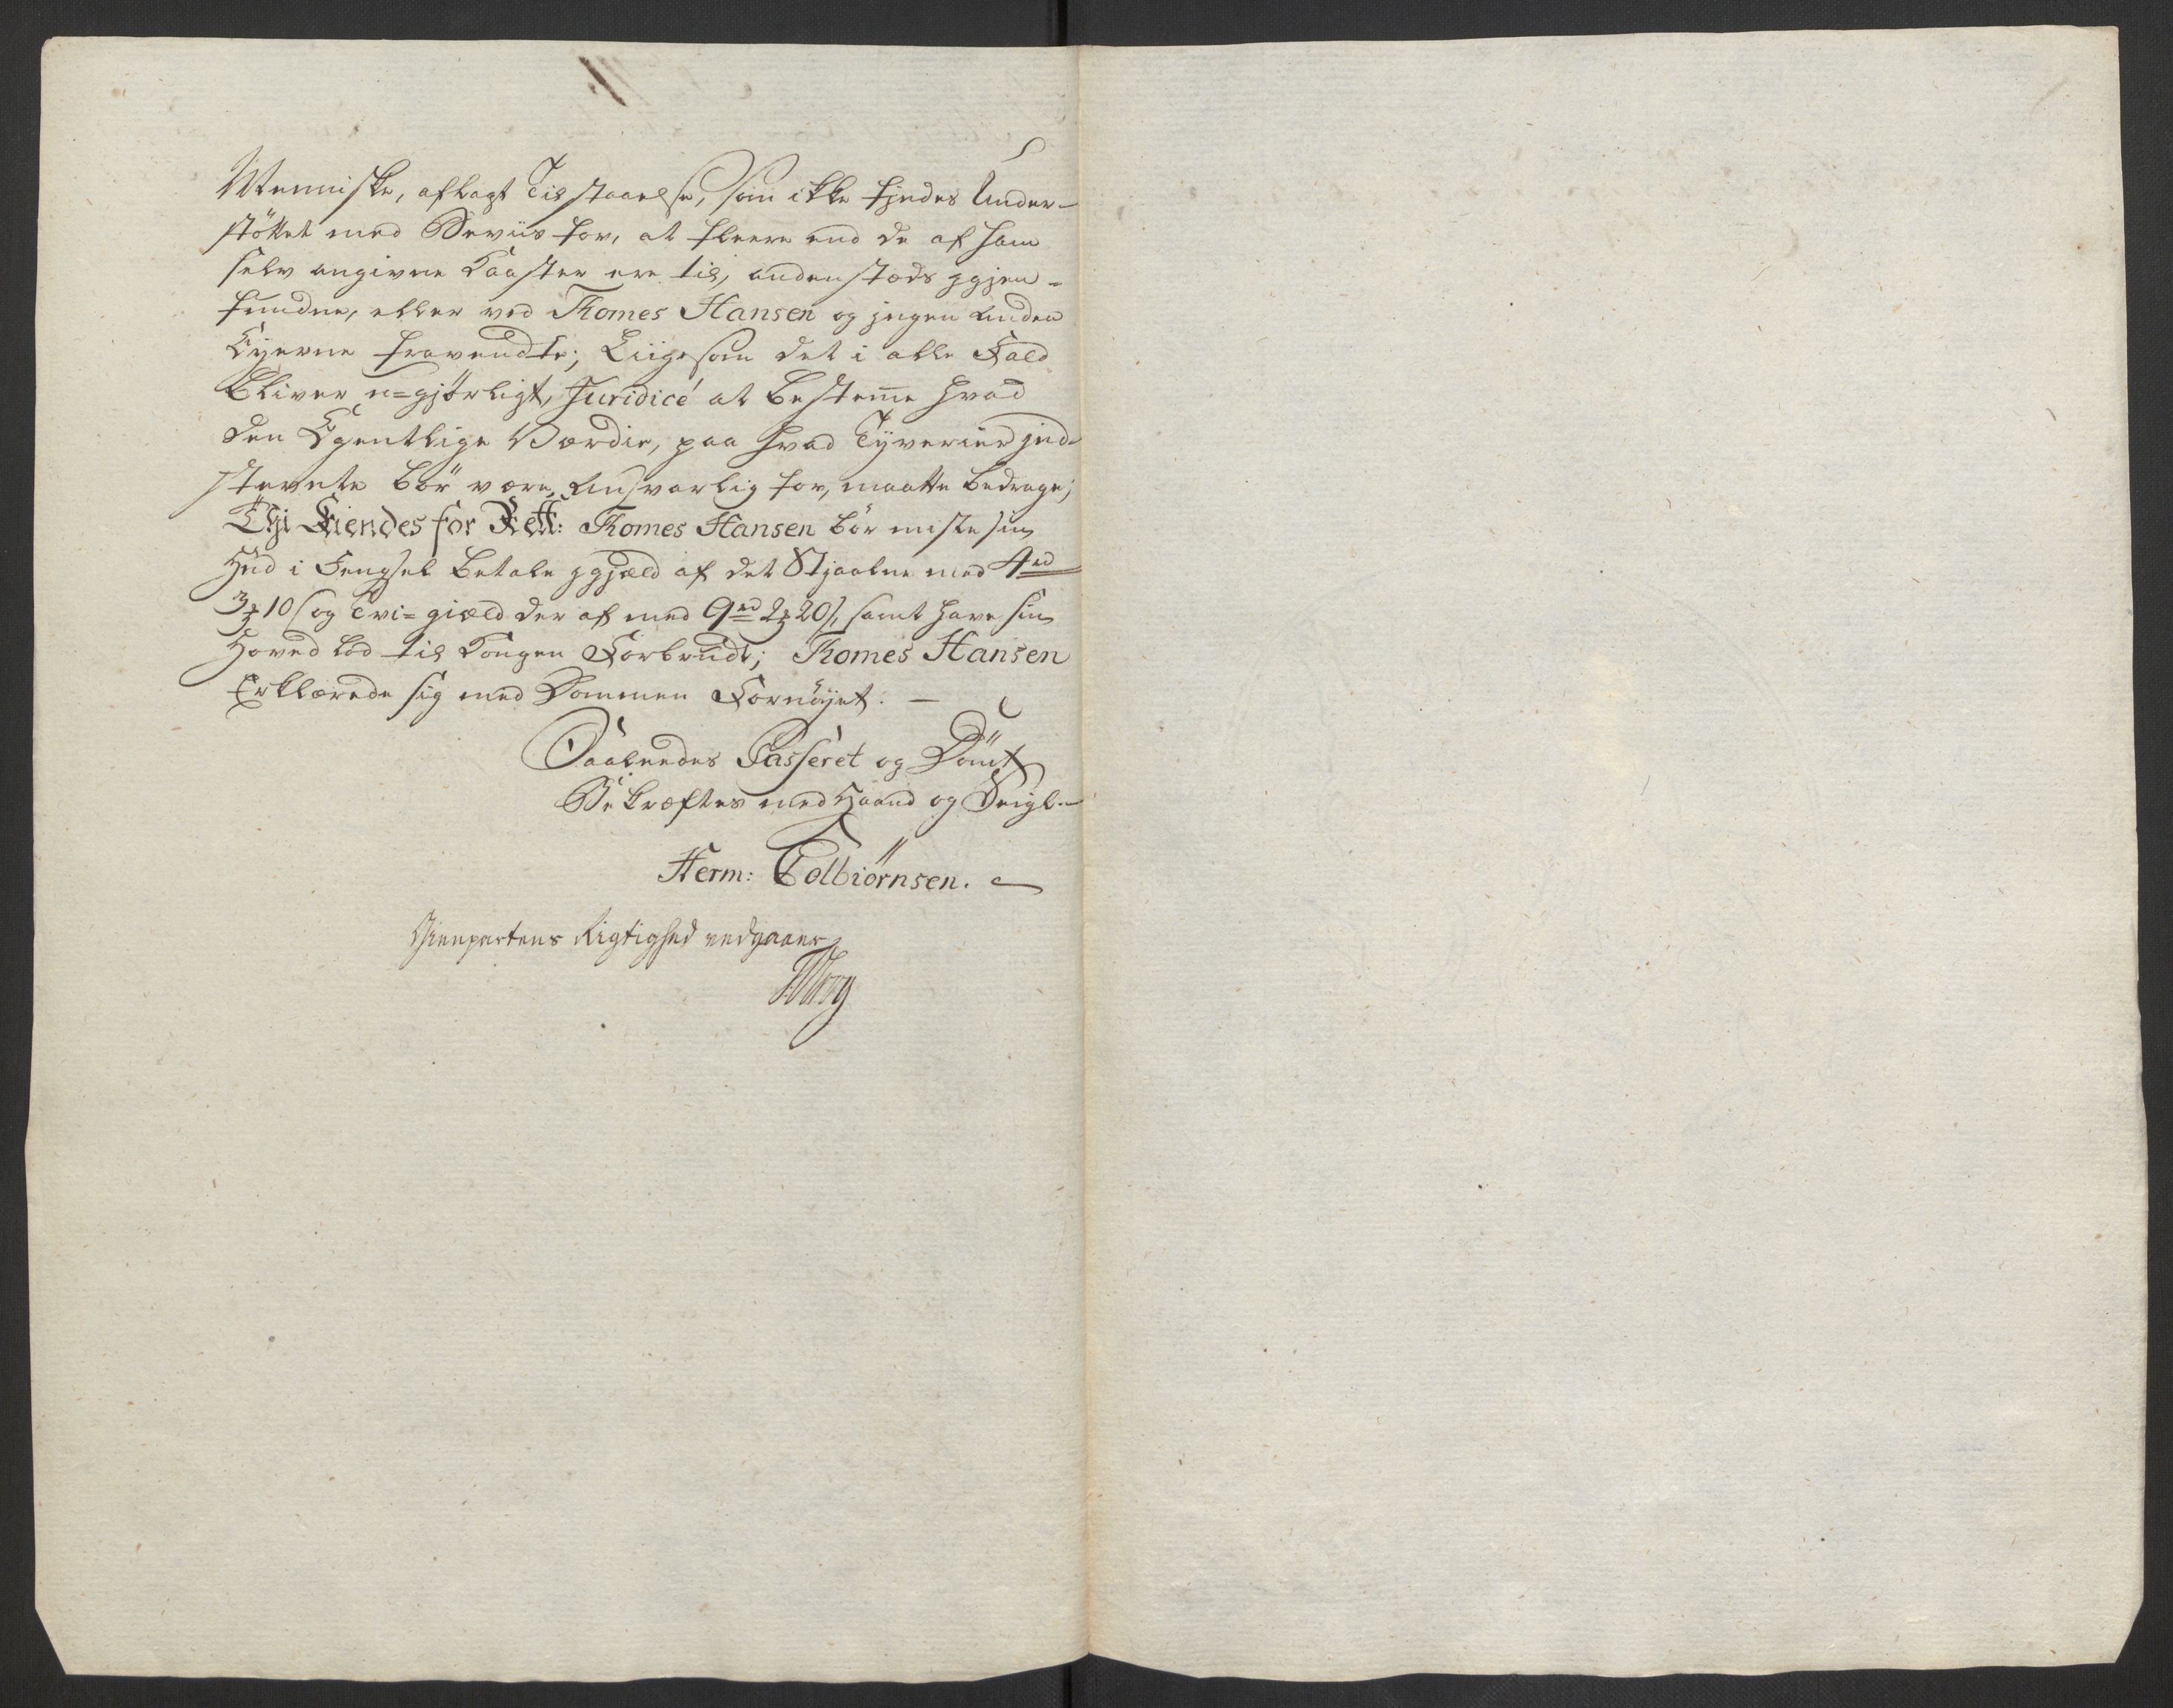 Menniske, aflagt Tilstaaelse, som ikke findes Under-
støttet med Beviis for, at fleere end de af ham
selv angivne Koster ere til, andenstæds igjen-
fundne, eller ved Thomes Hansen og ingen anden
Eyerne fravendte; Liigesom det i alle Fald
bliver u-gjørligt, Juridicé at bestem̄e hvad
den Egentlige Værdie, paa hvad Tyverier ind-
stevnte bør være Ansvarlig for, maatte bedrage;
Thi Kiendes for Rett: Thomes Hansen bør miste sin
Hud i Fengsel betale igjæld af det Stjaalne med 4 rd
3 10 s og Tvi-giæld der af med 9 rd 2 20 s, samt have sin
Hoved lod til Kongen Forbrudt; Thomes Hansen
Erklærede sig med Dommen Fornøyet. —
Saaledes Passeret og Dømt
Bekræftes med Haand og Seigl.
Herm: Colbiørnsen.
Gienpartens Rigtighed vedgaaer